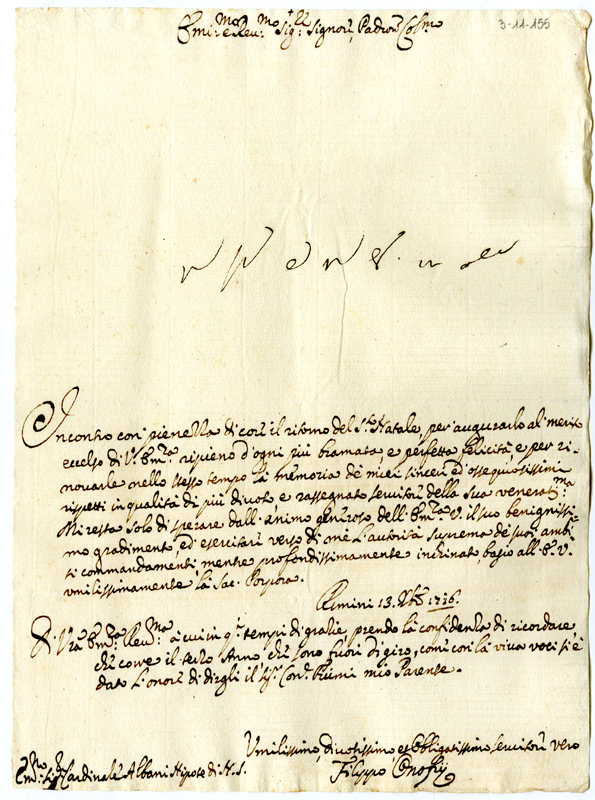 3-11-155
Em:mo e Reu:mo Sig:r Signore, Padron Col:mo
Incontro con pienezza di core il ritorno del S:to Natale, per augurarlo al merito
eccelso di V: Em:za ripieno d'ogni più bramata, e perfetta felicità, e per ri-
nouarle nello stesso tempo la memoria de miei sinceri ed ossequiosissimi
rispetti in qualità di più diuoto, e rassegnato seruitore della Sua venerat:ma
Mi resta solo di sperare dall'animo generoso dell'Em:za V. il suo benignissi-
mo gradimento, ed esercitare verso di me l'autorità suprema de suoi ambi-
ti commandamenti, mentre profondissimamente inchinato, bagio all'E:za V:
vmilissimamente la Sac: Porpora.
Rimini 13. Xbre 1716.
Di Vra Em:za Reu:ma à cui in q:ti tempi di gratie, prendo la confidenza di ricordare,
che corre il terzo Anno, che sono fuori di giro, come con la viua voce si è
dato l'onore di dirgli il Sig:r Con: Rimi mio Parente.
Vmilissimo, diuotissimo, et obbligatissimo seruitore vero
Em:mo Sig:r Cardinale Albani Nipote di N. S.
Filippo Onofrij